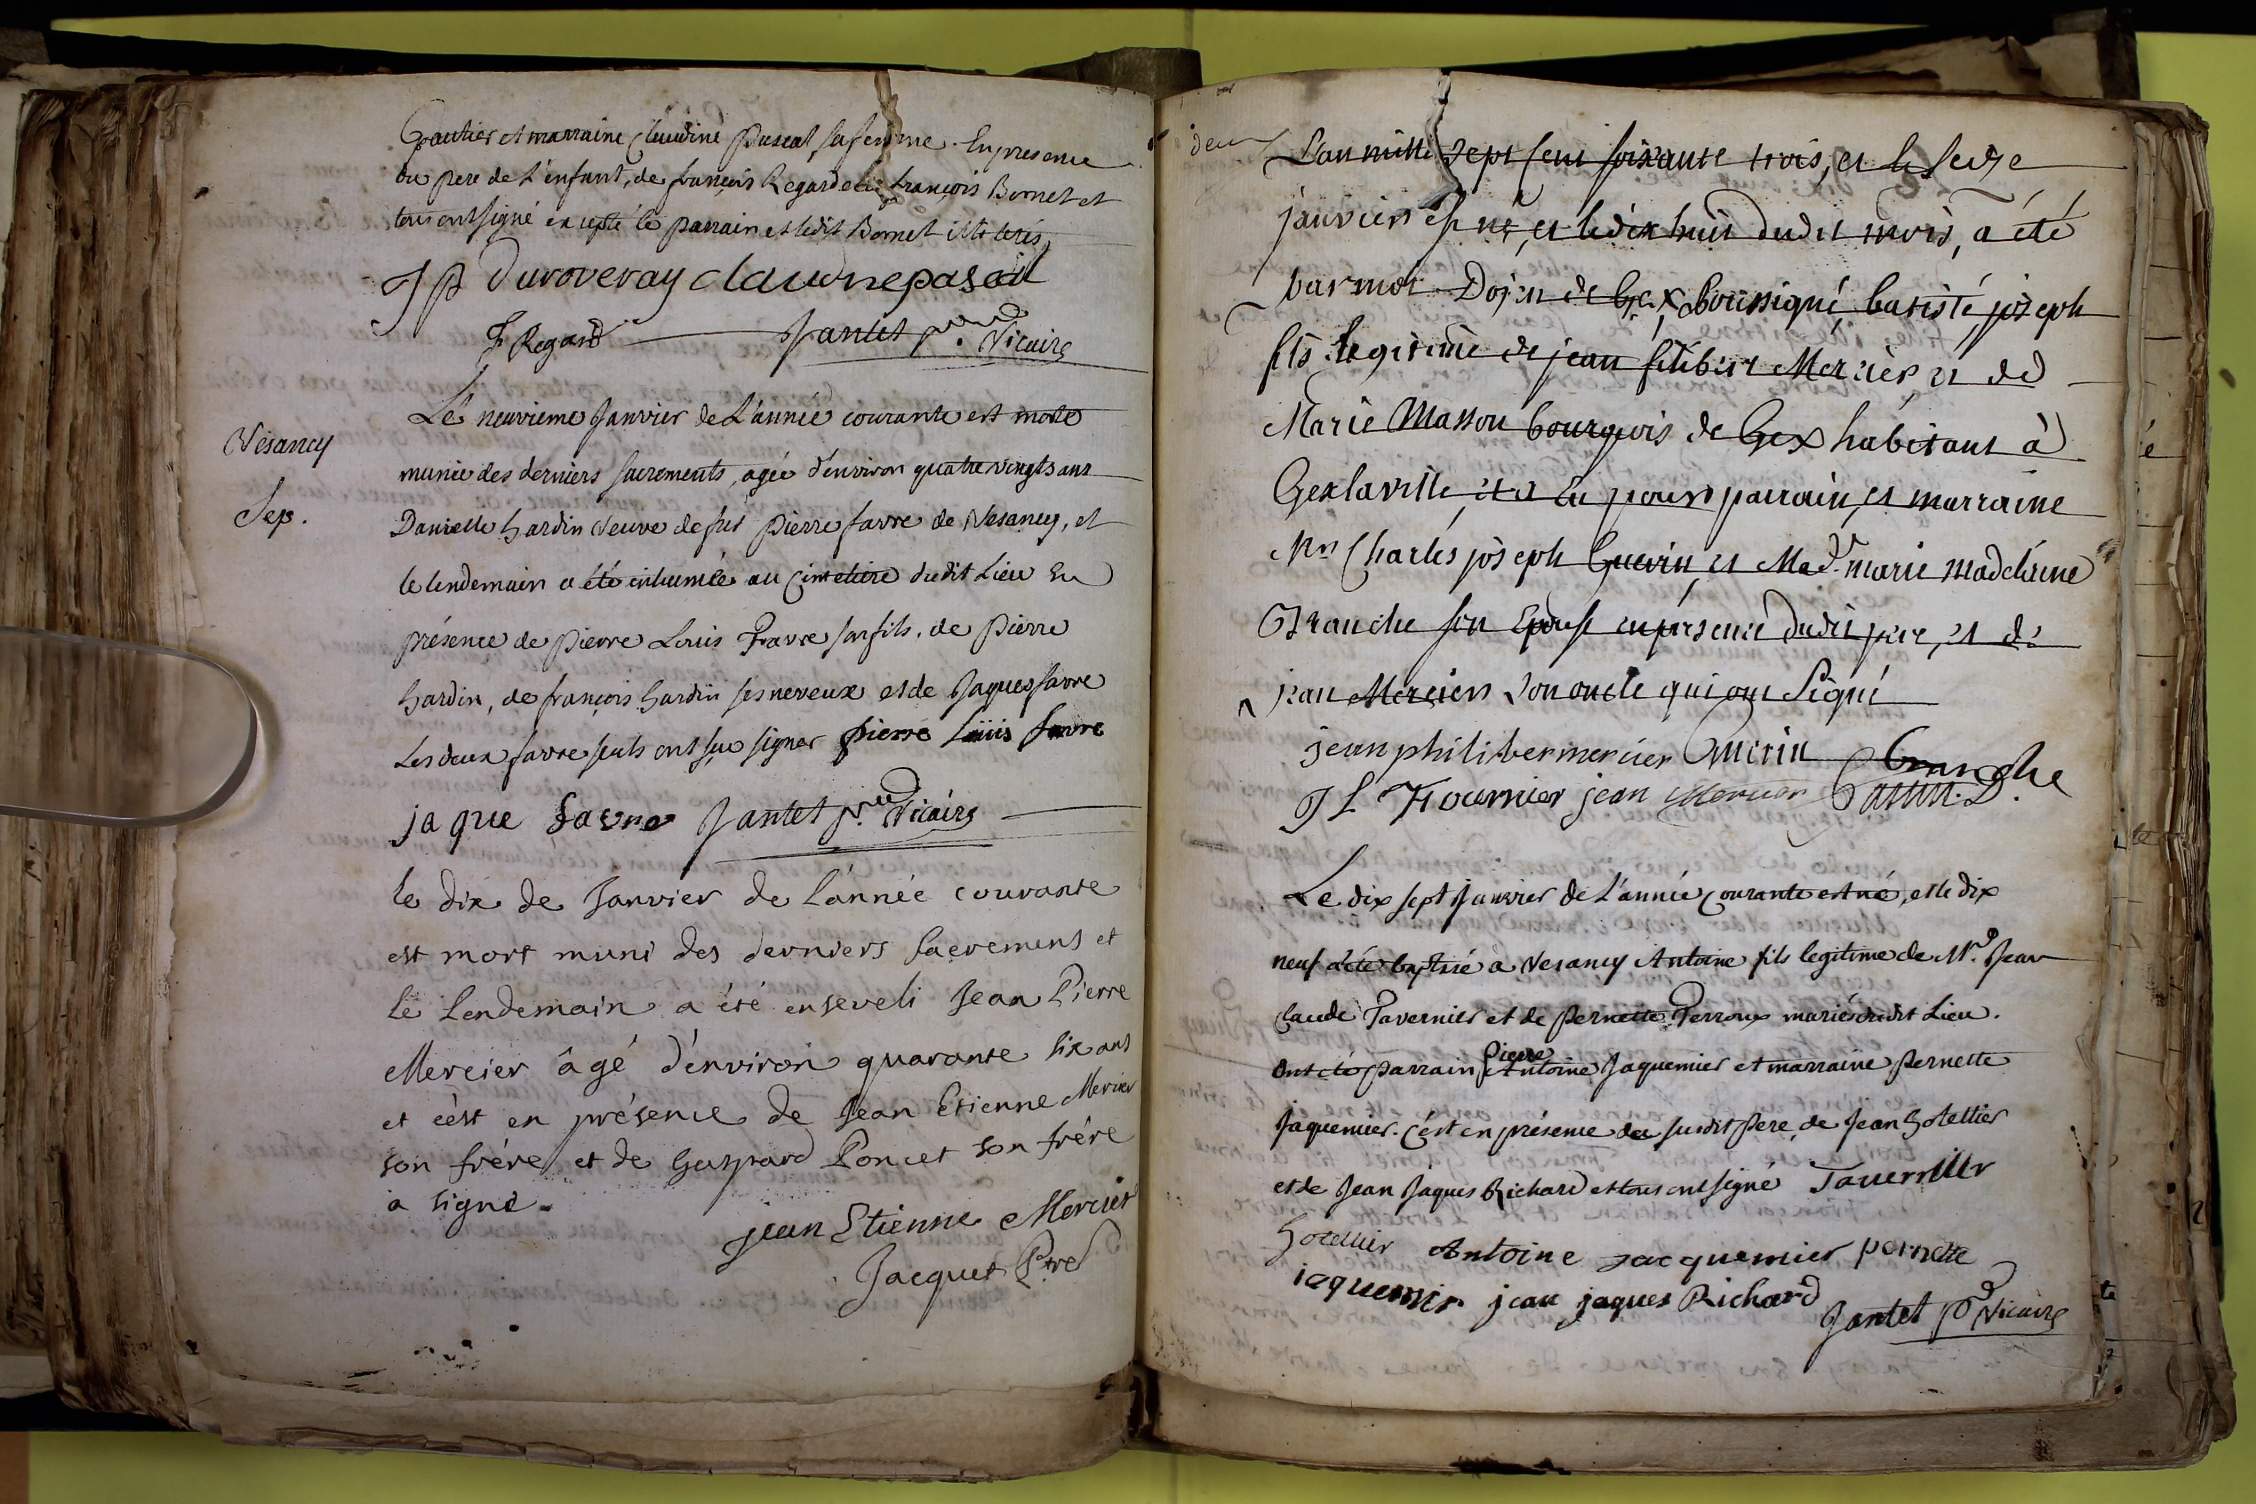 Gautier et marraine Claudine Pascal, sa femme. En presence
du pere de L'enfant, de françois Regard et de françois Bornet et
tous ont signé excepté le parrain et ledit Bornet illiterés,
J p Duroveray claudine pascal
F Regard Jantet ptre Vicaire
Vesancy
Sep.
Le neuvieme Janvier de L'année courante est morte
munie des derniers sacrements, agée d'environ quatre vingts ans
Danielle hardin veuve de feu Pierre favre de Vesancy, et
le lendemain a été inhumée au Cimetiere dudit Lieu En
présence de Pierre Louis Favre son fils, de Pierre
hardin, de françois hardin ses neveux et de Jaques favre
Les deux favre seuls ont sçu signer pierre Louis favre
jaque favre Jantet ptre Vicaire
le dix de Janvier de L'année courante
est mort muni des derniers Sacremens et
le Lendemain a été enseveli Jean Pierre
Mercier âgé d'environ quarante six ans
et c'est en présence de Jean Etienne Mercier
son frére et de Gaspard Poncet son frére
a signé.
jean Etienne Mercier
Jacquet Ptre
deux
L'an mille Sept Cent soixante trois, et le seize
janvier est né, et le dix huit dudit mois, a été
par moi Doyen de Gex soussigné, batisté, joseph
fils legitime de jean filibert Mercier et de
Marie Masson bourgeois de Gex habitant à
Gex la ville, et a Eu pour parrain, et marraine
Mr Charles joseph Guerin, et Made. marie madeleine
Branche son Epouse en présence dudit pere, et de
jean Mercier Son oncle qui ont Signé
jean philiber mercier Guerin Branche
J L Fournier jean Mercier
Le dix sept Janvier de L'année Courante est né, et le dix
neuf a été baptisé à Vesancy Antoine fils legitime de Mr. Jean
Claude Tavernier et de Pernette Perroux mariés dudit Lieu.
Pierre
Ont été parrain Antoine Jaquemier et marraine Pernette
Jaquemier. C'est en présence du susdit Pere, de Jean hotellier
et de Jean Jaques Richard et tous ont signé Tavernier
hotellier Antoine Jacquemier pernette
iaquemir jean jaques Richard
Jantet ptre Vicaire